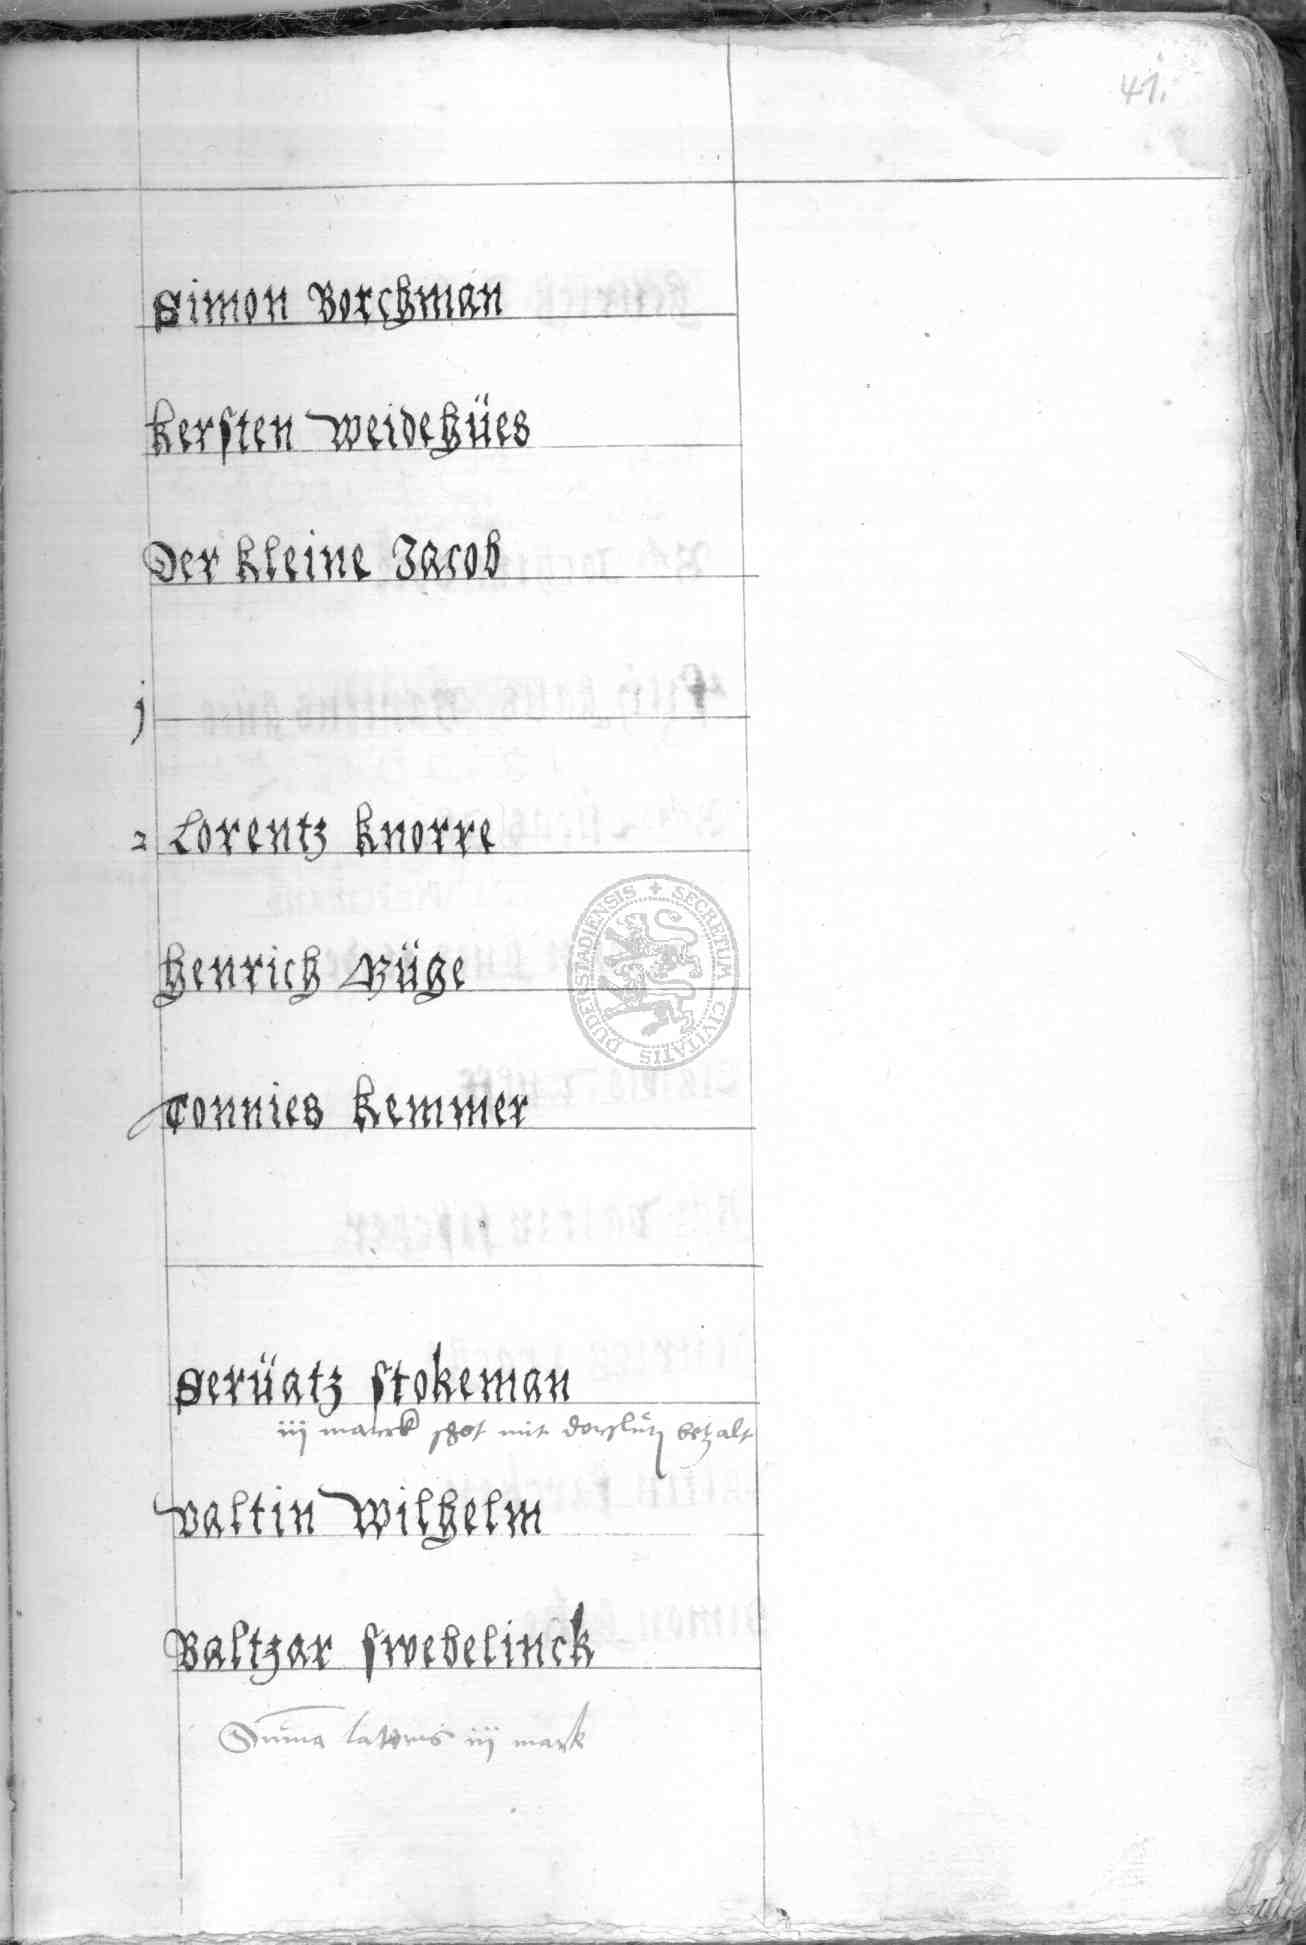 41.
Simon Borchman
Kersten Weidehües
Der kleine Jacob
j
2 Lorentz Knorre
Henrich Rüge
Tonnies Kemmer
Serüatz Stokeman
iij marck schot mit betzalt
Valtin Wilhelm
Baltzar Swebelinck
Suma lateris iij mark
SECRETUM CIVITATIS DUDERSTADIENSIS